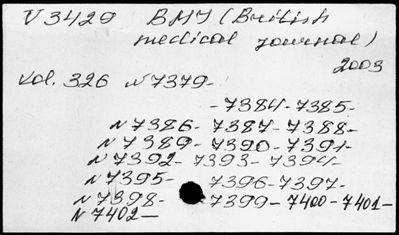 V 3429 BMJ (British
medical journal)
2003
Vol. 326 N 7379-
- 7384- 7385-
N 7386- 7387- 7388-
N 7389- 7390- 7391-
N 7392- 7393- 7394-
N 7395- 7396- 7397-
N 7398- 7399- 7400- 7401-
N 7402-